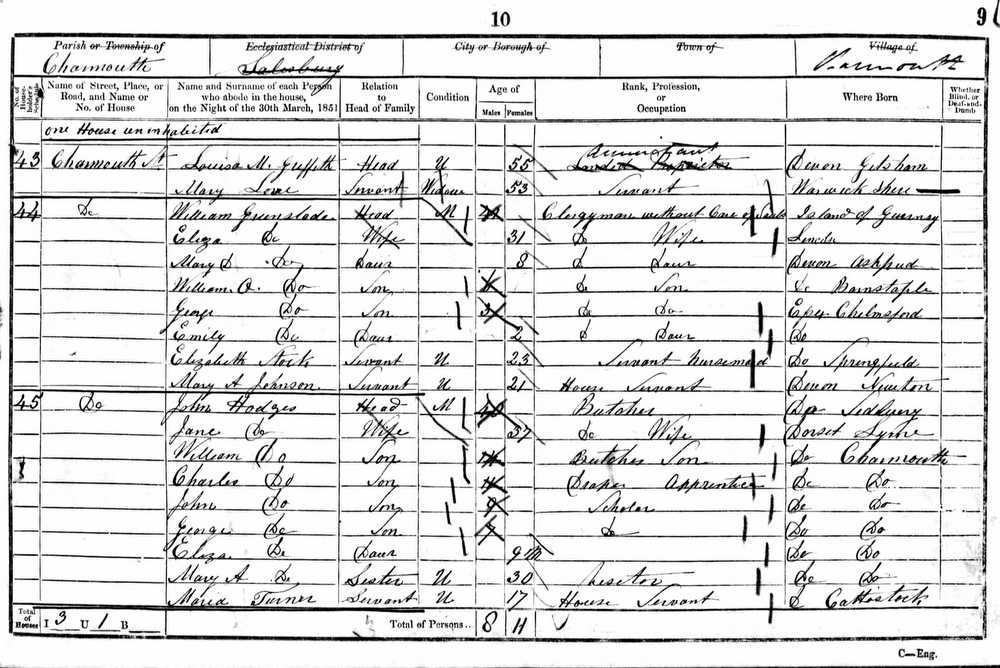 10
9
Parish or Township of Ecclesiastical District of City or Borough of Town of Village of
Charmouth Salesbury
No. of House-holder's Schedule Name of Street, Place, or Road, and Name or No. of House Name and Surname of each Person who abode in the house, on the Night of the 30th March, 1851 Relation to Head of Family Condition Age of Males Females Rank, Profession, or Occupation Where Born Whether Blind, or Deaf-and-Dumb
one House uninhabited
Annuitant
43 Charmouth St Louisa M. Griffith Head U 55 Landed Proprietor Devon
Mary Love Servant Widow 53 Servant Warwick Shire
44 Do William Grinslade Head M Clergyman without Care of Souls Island of Guernsey
Eliza Do Wife 31 Do Wife
Mary D Do Daur 8 Do Daur Devon
William O. Do Son Do Son Do Barnstaple
George Do Son 3 Do Do Chelmsford
Emily Do Daur 2 Do Daur Do
Elizabeth Stock Servant U 23 Servant Nursemaid Do Springfield
Mary A Johnson Servant U 21 House Servant Devon Newton
45 Do John Hodges Head M 40 Butcher Do
Jane Do Wife 37 Do Wife Dorset Lyme
William Do Son 14 Butcher Son Do Charmouth
Charles Do Son Draper Apprentice Do Do
John Do Son 9 Scholar Do Do
George Do Son 7 Do Do Do
Eliza Do Daur 9 M Do Do
Mary A Do Sister U 30 Visitor Do Do
Maria Turner Servant U 17 House Servant Do Cattistock
Total of Houses I 3 U 1 B Total of Persons.. 8 11
C—Eng.